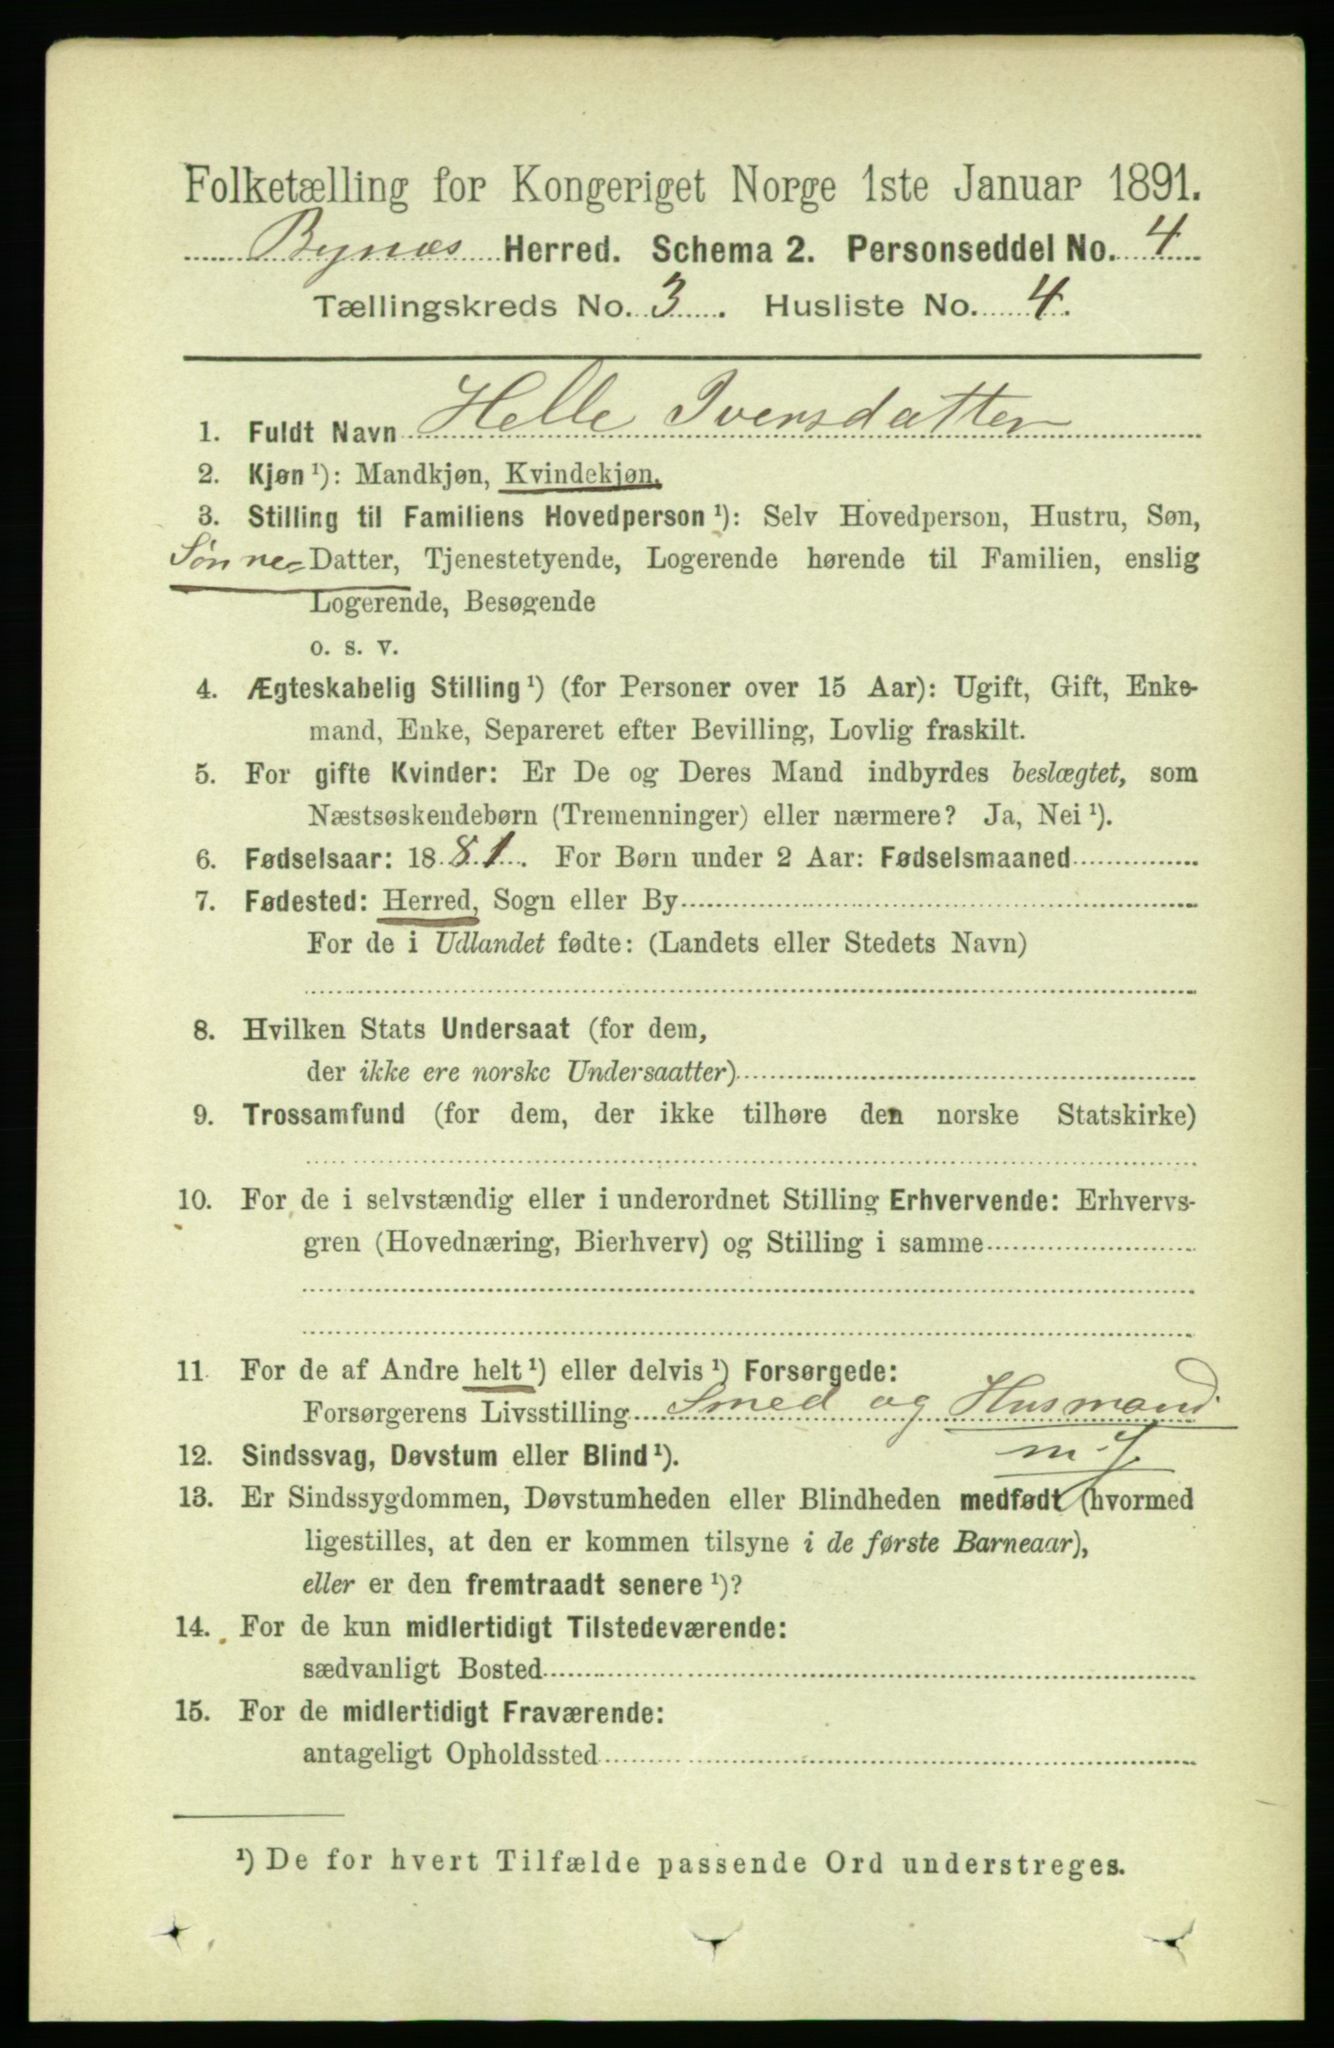 Folketælling for Kongeriget Norge 1ste Januar 1891.
Bynæs Herred. Schema 2. Personseddel No. 4
Tællingskreds No. 3. Husliste No. 4.
1. Fuldt Navn Helle Iversdatter
2. Kjøn ¹): Mandkjøn, Kvindekjøn.
3. Stilling til Familiens Hovedperson ¹): Selv Hovedperson, Hustru, Søn,
Sønne= Datter, Tjenestetyende, Logerende hørende til Familien, enslig
Logerende, Besøgende
o. s. v.
4. Ægteskabelig Stilling ¹) (for Personer over 15 Aar): Ugift, Gift, Enke-
mand, Enke, Separeret efter Bevilling, Lovlig fraskilt.
5. For gifte Kvinder: Er De og Deres Mand indbyrdes beslægtet, som
Næstsøskendebørn (Tremenninger) eller nærmere? Ja, Nei ¹).
6. Fødselsaar: 1881. For Børn under 2 Aar: Fødselsmaaned
7. Fødested: Herred, Sogn eller By
For de i Udlandet fødte: (Landets eller Stedets Navn)
8. Hvilken Stats Undersaat (for dem,
der ikke ere norske Undersaatter)
9. Trossamfund (for dem, der ikke tilhøre den norske Statskirke)
10. For de i selvstændig eller i underordnet Stilling Erhvervende: Erhvervs-
gren (Hovednæring, Bierhverv) og Stilling i samme
11. For de af Andre helt ¹) eller delvis ¹) Forsørgede:
Forsørgerens Livsstilling Smed og Husmand
m. J.
12. Sindssvag, Døvstum eller Blind ¹).
13. Er Sindssygdommen, Døvstumheden eller Blindheden medfødt (hvormed
ligestilles, at den er kommen tilsyne i de første Barneaar),
eller er den fremtraadt senere ¹)?
14. For de kun midlertidigt Tilstedeværende:
sædvanligt Bosted
15. For de midlertidigt Fraværende:
antageligt Opholdssted
¹) De for hvert Tilfælde passende Ord understreges.